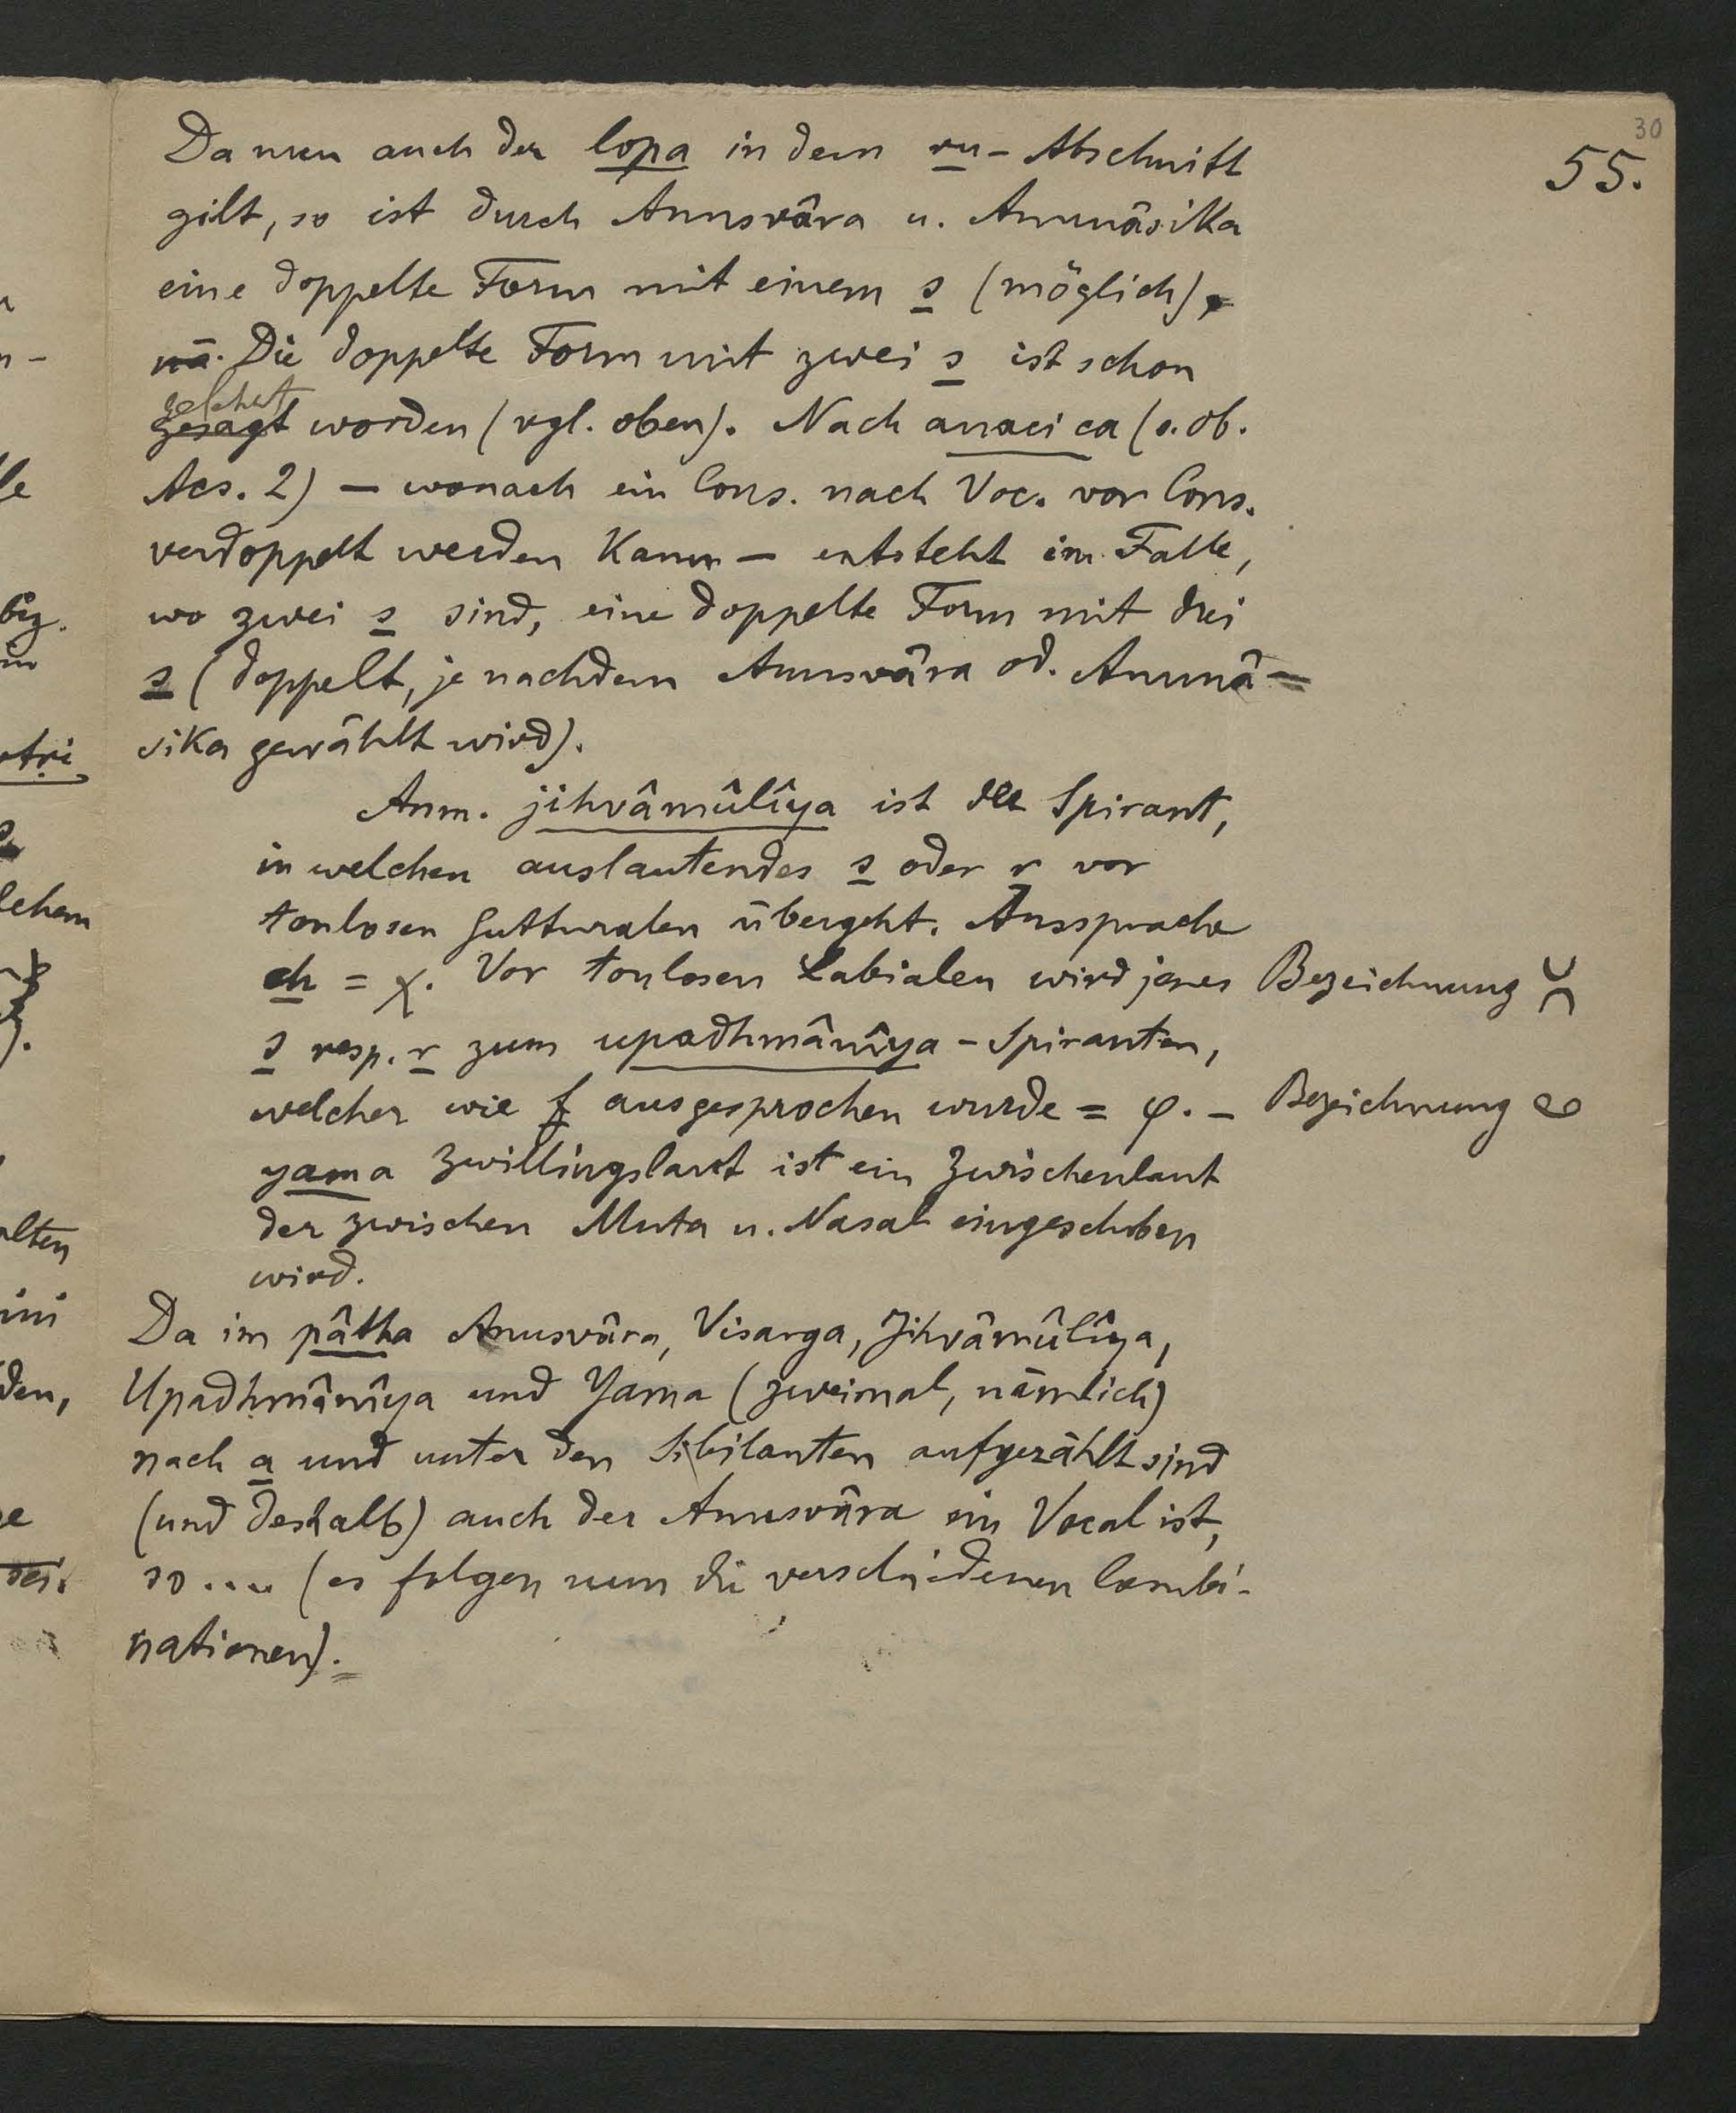 30
55.
Da nun auch der lopa in dem ru-Abschnitt
gilt, so ist durch Anusvâra u. Anunâsika
eine doppelte Form mit einem s (möglich),
nā. Die doppelte Form mit zwei s ist schon
gelehrt
gesagt worden (vgl. oben). Nach anaci ca (s. ob.
Acs. 2) — wonach ein Cons. nach Voc. vor Cons.
verdoppelt werden kann — entsteht im Falle,
wo zwei s sind, eine doppelte Form mit drei
s (doppelt, je nachdem Anusvâra od. Anunâ-
sika gewählt wird).
Anm. jihvâmûlîya ist der Spirant,
in welchen auslautendes s oder r vor
tonlosen Gutturalen übergeht. Aussprache
ch = χ. Vor tonlosen Labialen wird jenes
Bezeichnung
s resp. r zum upadhmânîya-Spiranten,
welcher wie f ausgesprochen wurde = φ. —
Bezeichnung
yama Zwillingslaut ist ein Zwischenlaut
der zwischen Muta u. Nasal eingeschoben
wird.
Da im pâtha Anusvâra, Visarga, Jihvâmûlîya,
Upadhmânîya und Yama (zweimal, nämlich)
nach a und unter den Sibilanten aufgezählt sind
(und deshalb) auch der Anusvâra ein Vocal ist,
so .... (es folgen nun die verschiedenen Combi-
nationen).